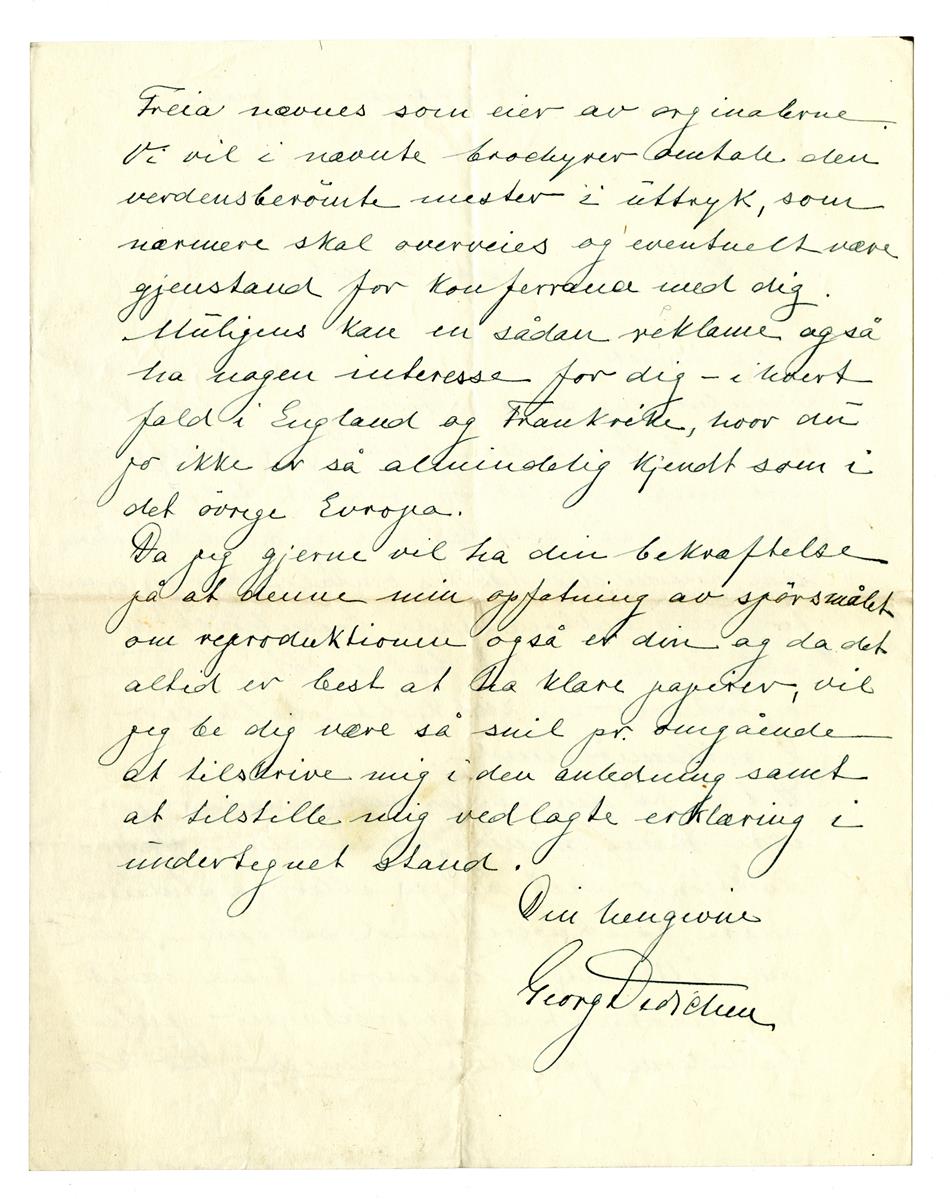 Freia nævnes som eier av orginalerne.
Vi vil i nævnte brochyrer omtale den
verdensberömte mester i ūttryk, som
nærmere skal overveies og eventuelt være
gjenstand for konferrance med dig.
Mūligens kan en sådan reklame også
ha nogen interesse for dig – i hvert
fald i England og Frankrike, hvor dū
jo ikke er så almindelig kjendt som i
det övrige Evropa.
Da jeg gjerne vil ha din bekræftelse
på at denne min opfatning av spörsmålet
om reproduktionen også er din og da det
altid er best at ha klare papirer, vil
jeg be dig være så snil pr. omgående
at tilskrive mig i den anledning samt
at tilstille mig vedlagte erklæring i
ūndertegnet stand.
Din hengivne
Georg Dedichen